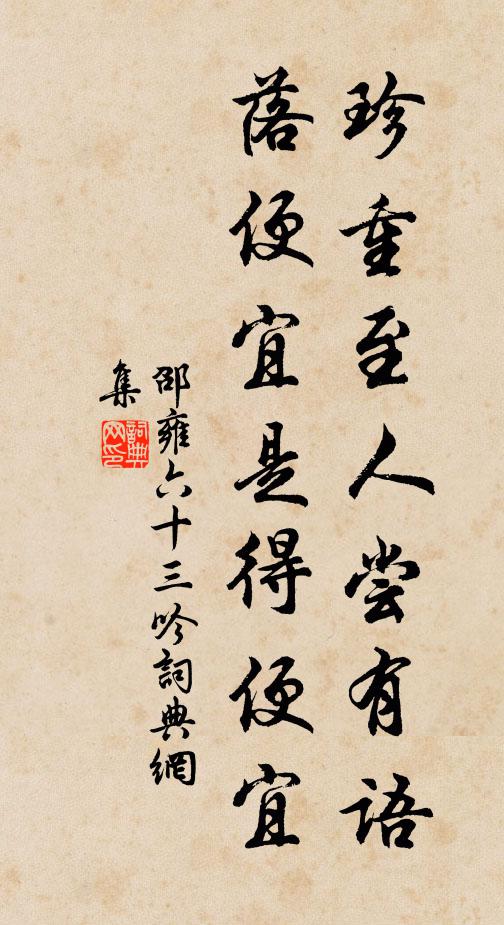 珍重至人尝有语
落便宜是得便宜
邵雍六十三吟詞典網
集
詞典
网印